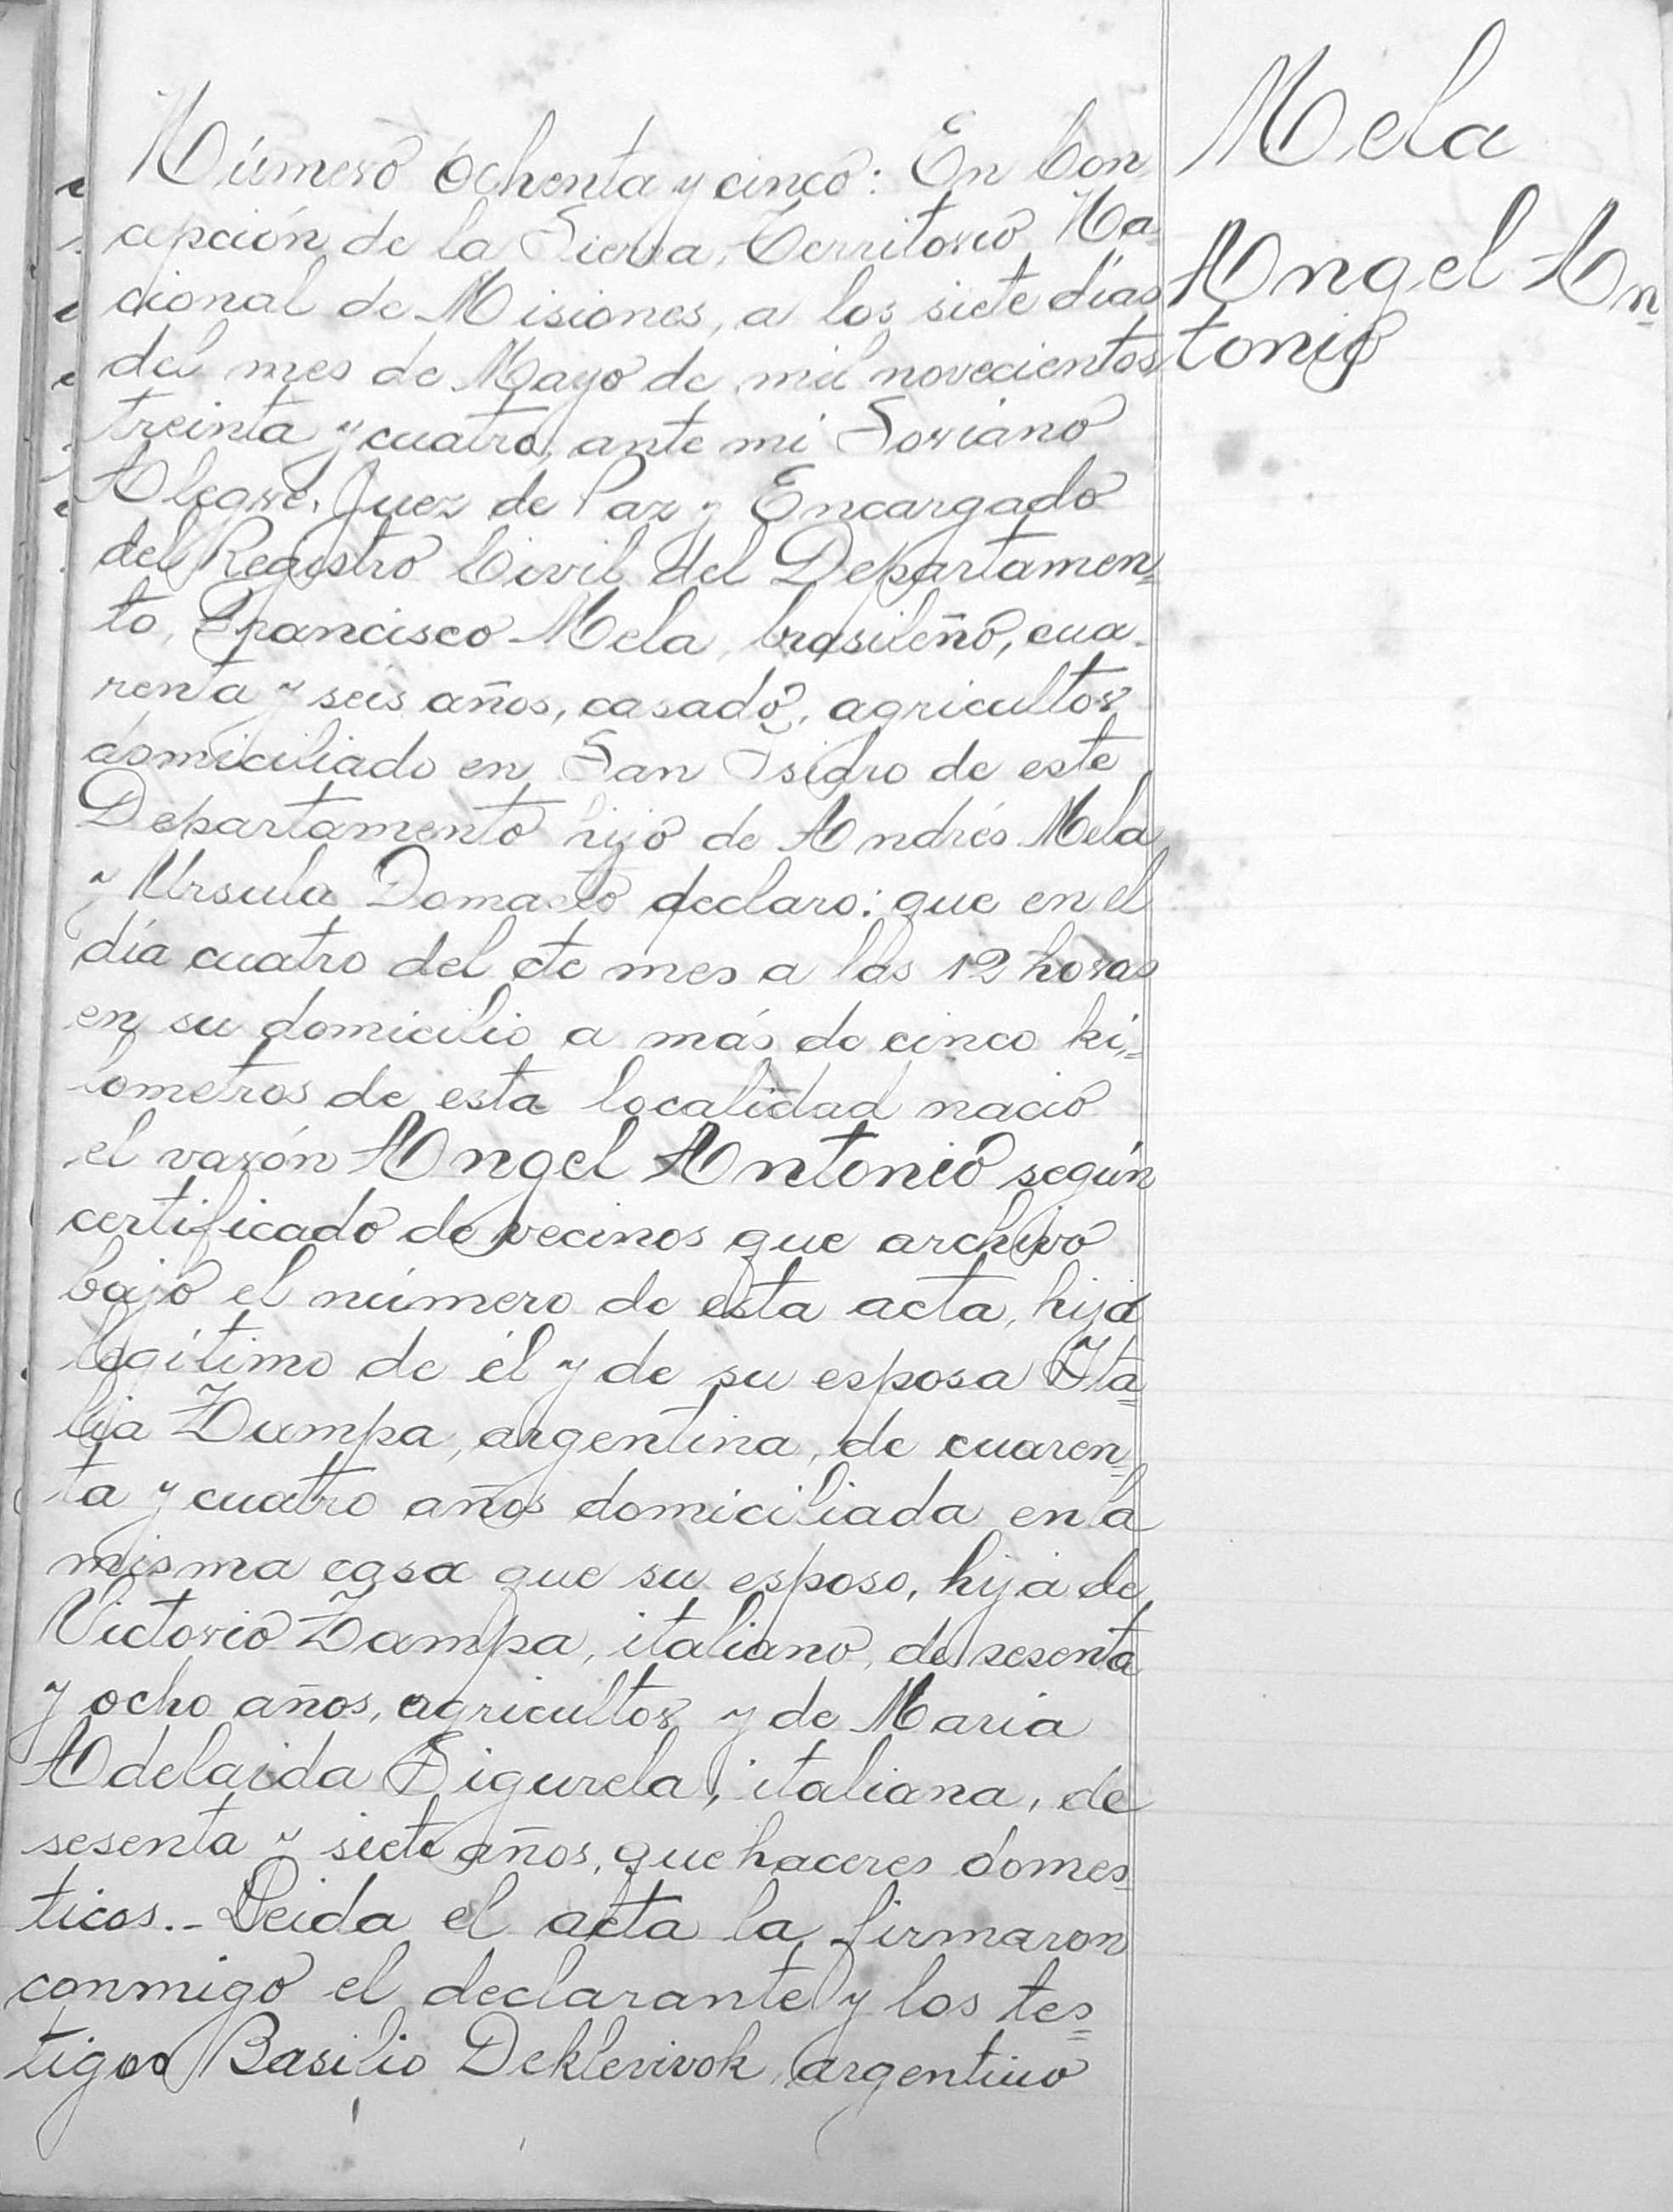 Mela
Angel An=
tonio
Número ochenta y cinco: En Con
cepción de la Sierra, Territorio Na=
cional de Misiones, a los siete días
del mes de Mayo de mil novecientos
treinta y cuatro, ante mi Soriano
Alegre, Juez de Paz y Encargado
del Registro Civil del Departamen=
to, Francisco Mela, brasileño, cua-
renta y seis años, casado, agricultor
domiciliado en San Isidro de este
Departamento hijo de Andrés Mela
y Ursula declaro: que en el
día cuatro del cte mes a las 12 horas
en su domicilio a más de cinco ki=
lometros de esta localidad nació
el varón Angel Antonio según
certificado de vecinos que archivo
bajo el número de esta acta, hijo
legítimo de él y de su esposa Ita=
lia Zampa, argentina, de cuaren=
ta y cuatro años domiciliada en la
misma casa que su esposo, hija de
Victorio Zampa, italiano, de sesenta
y ocho años, agricultor y de Maria
Adelaida Sigurela, italiana, de
sesenta y siete años, que haceres domes=
ticos.- Leida el acta la firmaron
conmigo el declarante y los tes=
tigos Basilio Deklerivok, argentino